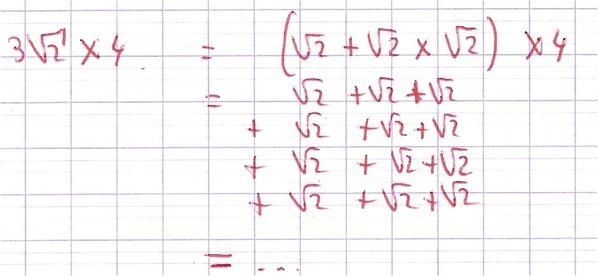 3√2 × 4 = (√2 + √2 × √2) × 4
= √2 + √2 + √2
+ √2 + √2 + √2
+ √2 + √2 + √2
+ √2 + √2 + √2
= ...